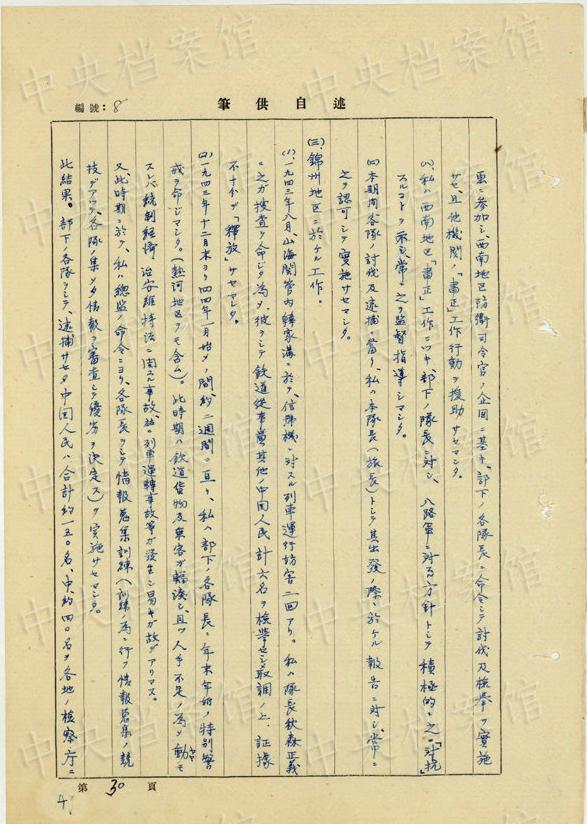 中央档案馆
筆供述自
編號：8
団ニ参加シ、西南地区防衛司令官ノ企図ニ基キ、部下ノ各隊長ニ命令シテ討伐及検挙ヲ実施
サセ、且他機関ノ「粛正」工作行動ヲ援助サセマシタ。
(ハ)私ハ西南地区「粛正」工作ニツキ、部下ノ隊長ニ対シ、八路軍ニ対スル方針トシテ積極的ニ之ニ「対抗」
スルコトヲ示シ、常ニ之ヲ監督指導シマシタ。
(ニ)本期間各隊ノ討伐及逮捕ニ当リ、私ハ本隊長(旅長)トシテ其出発ノ際ニ於ケル報告ニ対シ、常ニ
之ヲ認可シテ実施サセマシタ。
(三)錦州地区ニ於ケル工作。
(1)、一九四三年八月、山海関管内韓家溝ニ於テ、信号機ニ対スル列車運行妨害二回アリ。私ハ隊長秋森正義
ニ之ガ捜査ヲ命ジタ為メ、彼ヲシテ鉄道従事員其他ノ中国人民計六名ヲ検挙セシメ取調ノ上、証拠
不十分デ「釈放」サセマシタ。
(2)一九四三年十二月末ヨリ四四年一月始メノ間約二週間ニ亘リ、私ハ部下ノ各隊長ニ年末年始ノ特別警
戒ヲ命ジマシタ。(熱河地区ヲモ含ム)。此時期ハ鉄道貨物及乗客ガ輻湊シ、且ツ人手不足ノ為メ動モ
スレバ統制経済、治安維持法ニ関スル事故、並ニ列車運転事故等ガ発生シ易キガ故デアリマス。
又、此時期ニ於テ、私ハ総監ノ命令ニヨリ、各隊長ヲシテ情報蒐集訓練(訓練ノ為ニ行フ情報蒐集ノ競
技デアツテ、各隊ノ集メタ情報ヲ審査シテ優劣ヲ決定ス)ヲ実施サセマシタ。
此結果。部下ノ各隊ヲシテ、逮捕サセタ中国人民ハ合計約一五〇名、中約四〇名ヲ各地ノ検察庁ニ
第30頁